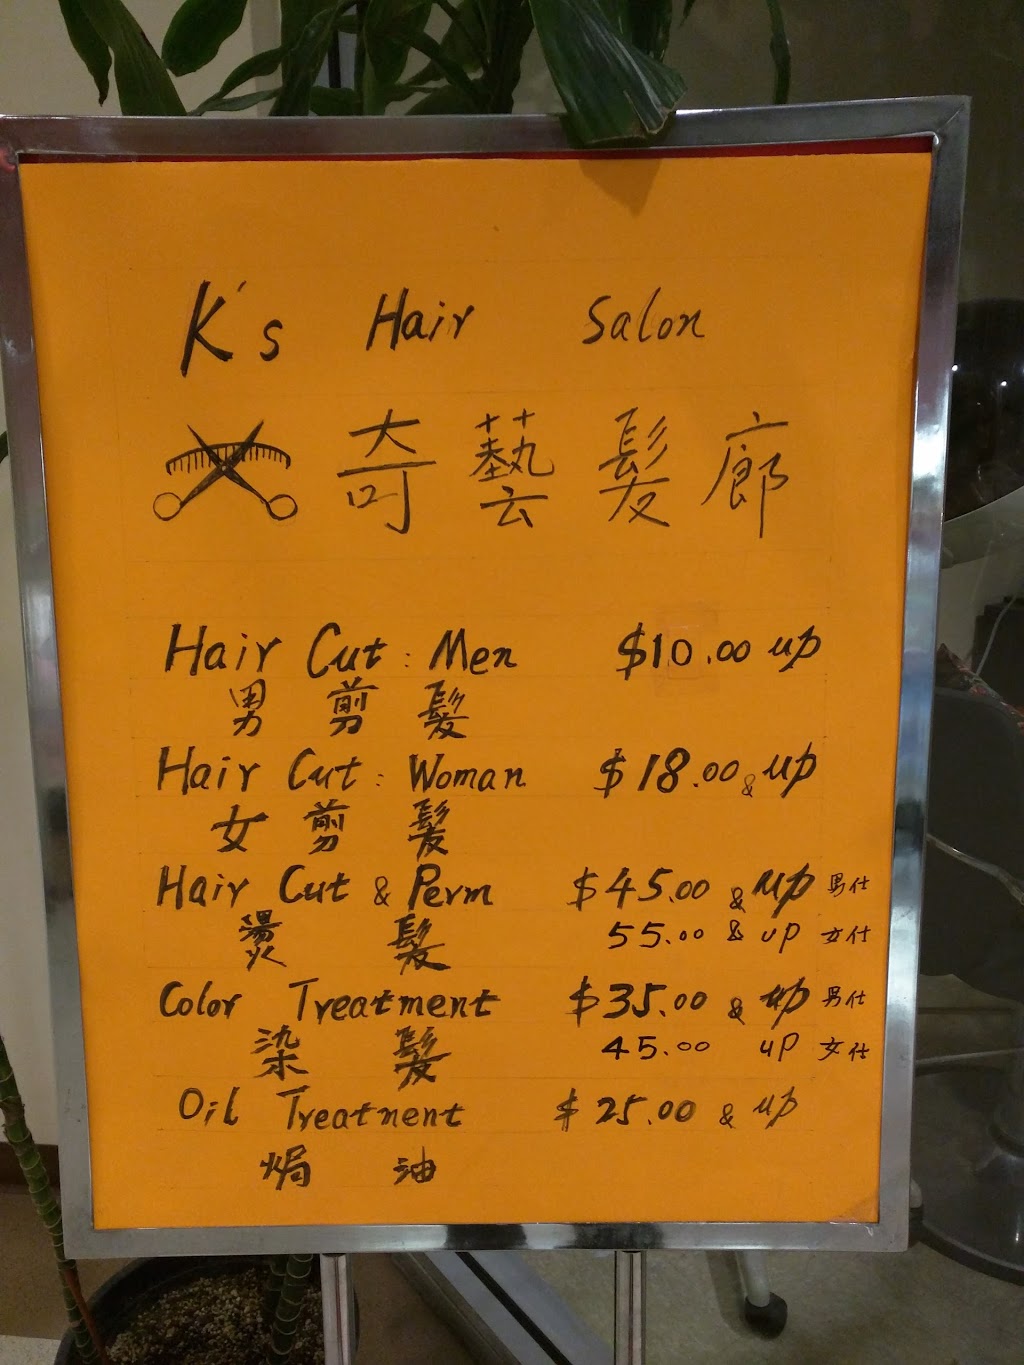 K's Hair Salon
奇藝髮廊
Hair Cut : Men $10.00 up
男剪髮
Hair Cut : Woman $18.00 & up
女剪髮
Hair Cut & Perm $45.00 & up 男仕
燙髮 55.00 & up 女仕
Color Treatment $35.00 & up 男仕
染髮 45.00 up 女仕
Oil Treatment $25.00 & up
焗油